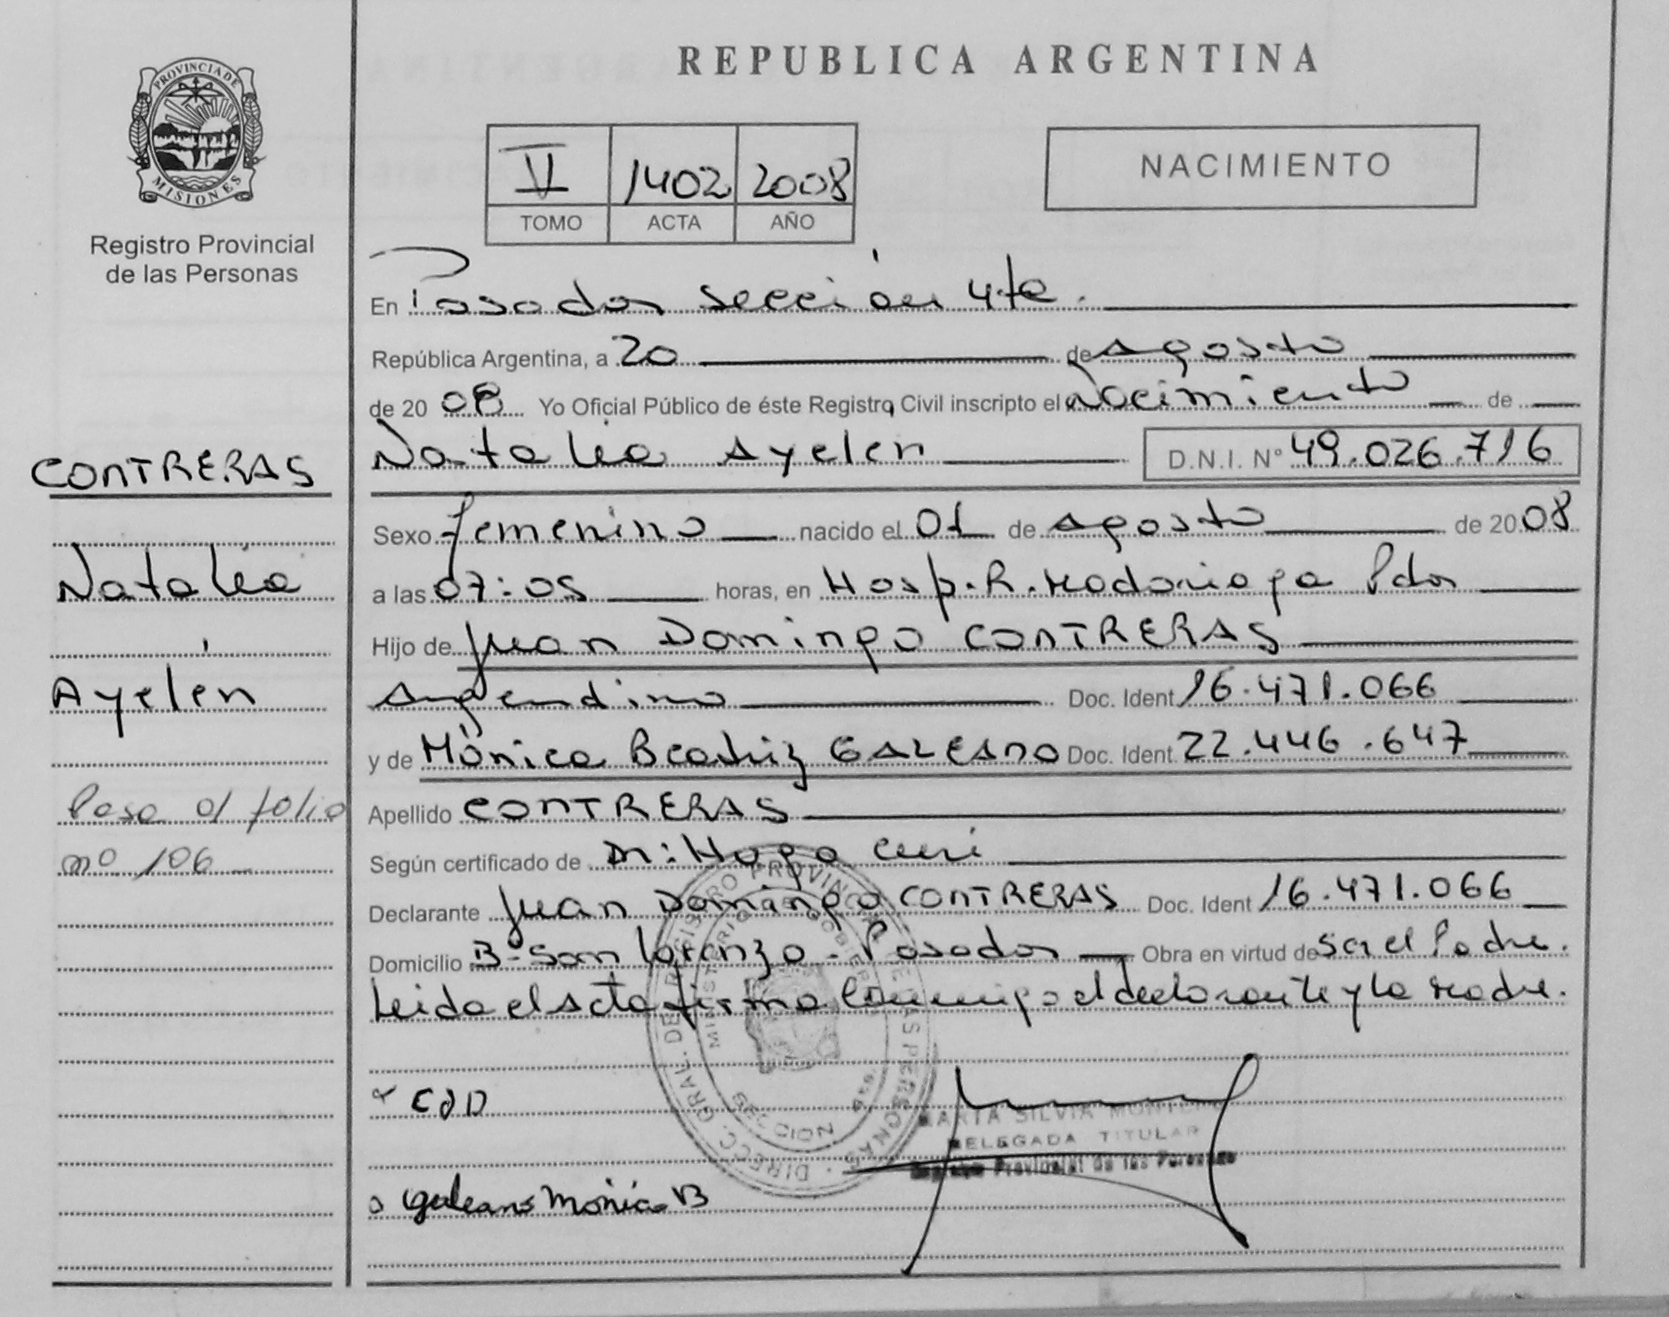 REPUBLICA ARGENTINA
PROVINCIA DE
MISIONES
Registro Provincial
de las Personas
V 1402 2008
TOMO ACTA AÑO
NACIMIENTO
En Posadas sección 4ta.
República Argentina, a 20 de Agosto
de 2008 Yo Oficial Público de éste Registro Civil inscripto el Nacimiento de
Natalia Ayelén D.N.I. N° 49.026.716
Sexo femenino nacido el 01 de Agosto de 2008
a las 07:05 horas, en Hosp. R. Madariaga Pdas
Hijo de Juan Domingo CONTRERAS
Argentino Doc. Ident 16.471.066
y de Mónica Beatriz GALEANO Doc. Ident. 22.446.647
Apellido CONTRERAS
Según certificado de Dr: Hugo
Declarante Juan Domingo CONTRERAS Doc. Ident 16.471.066
Domicilio B- San Lorenzo - Posadas Obra en virtud de Ser el Padre.
Leida el Acta firma conmigo el declarante y la Madre.
CONTRERAS
Natalia
Ayelén
Pasa al folio
nº 106
CJD
Galeano Mónica B
DIRECC. GRAL. DEL REGISTRO PROVINCIAL DE LAS PERSONAS
MARTA SILVIA
DELEGADA TITULAR
Registro Provincial de las Personas